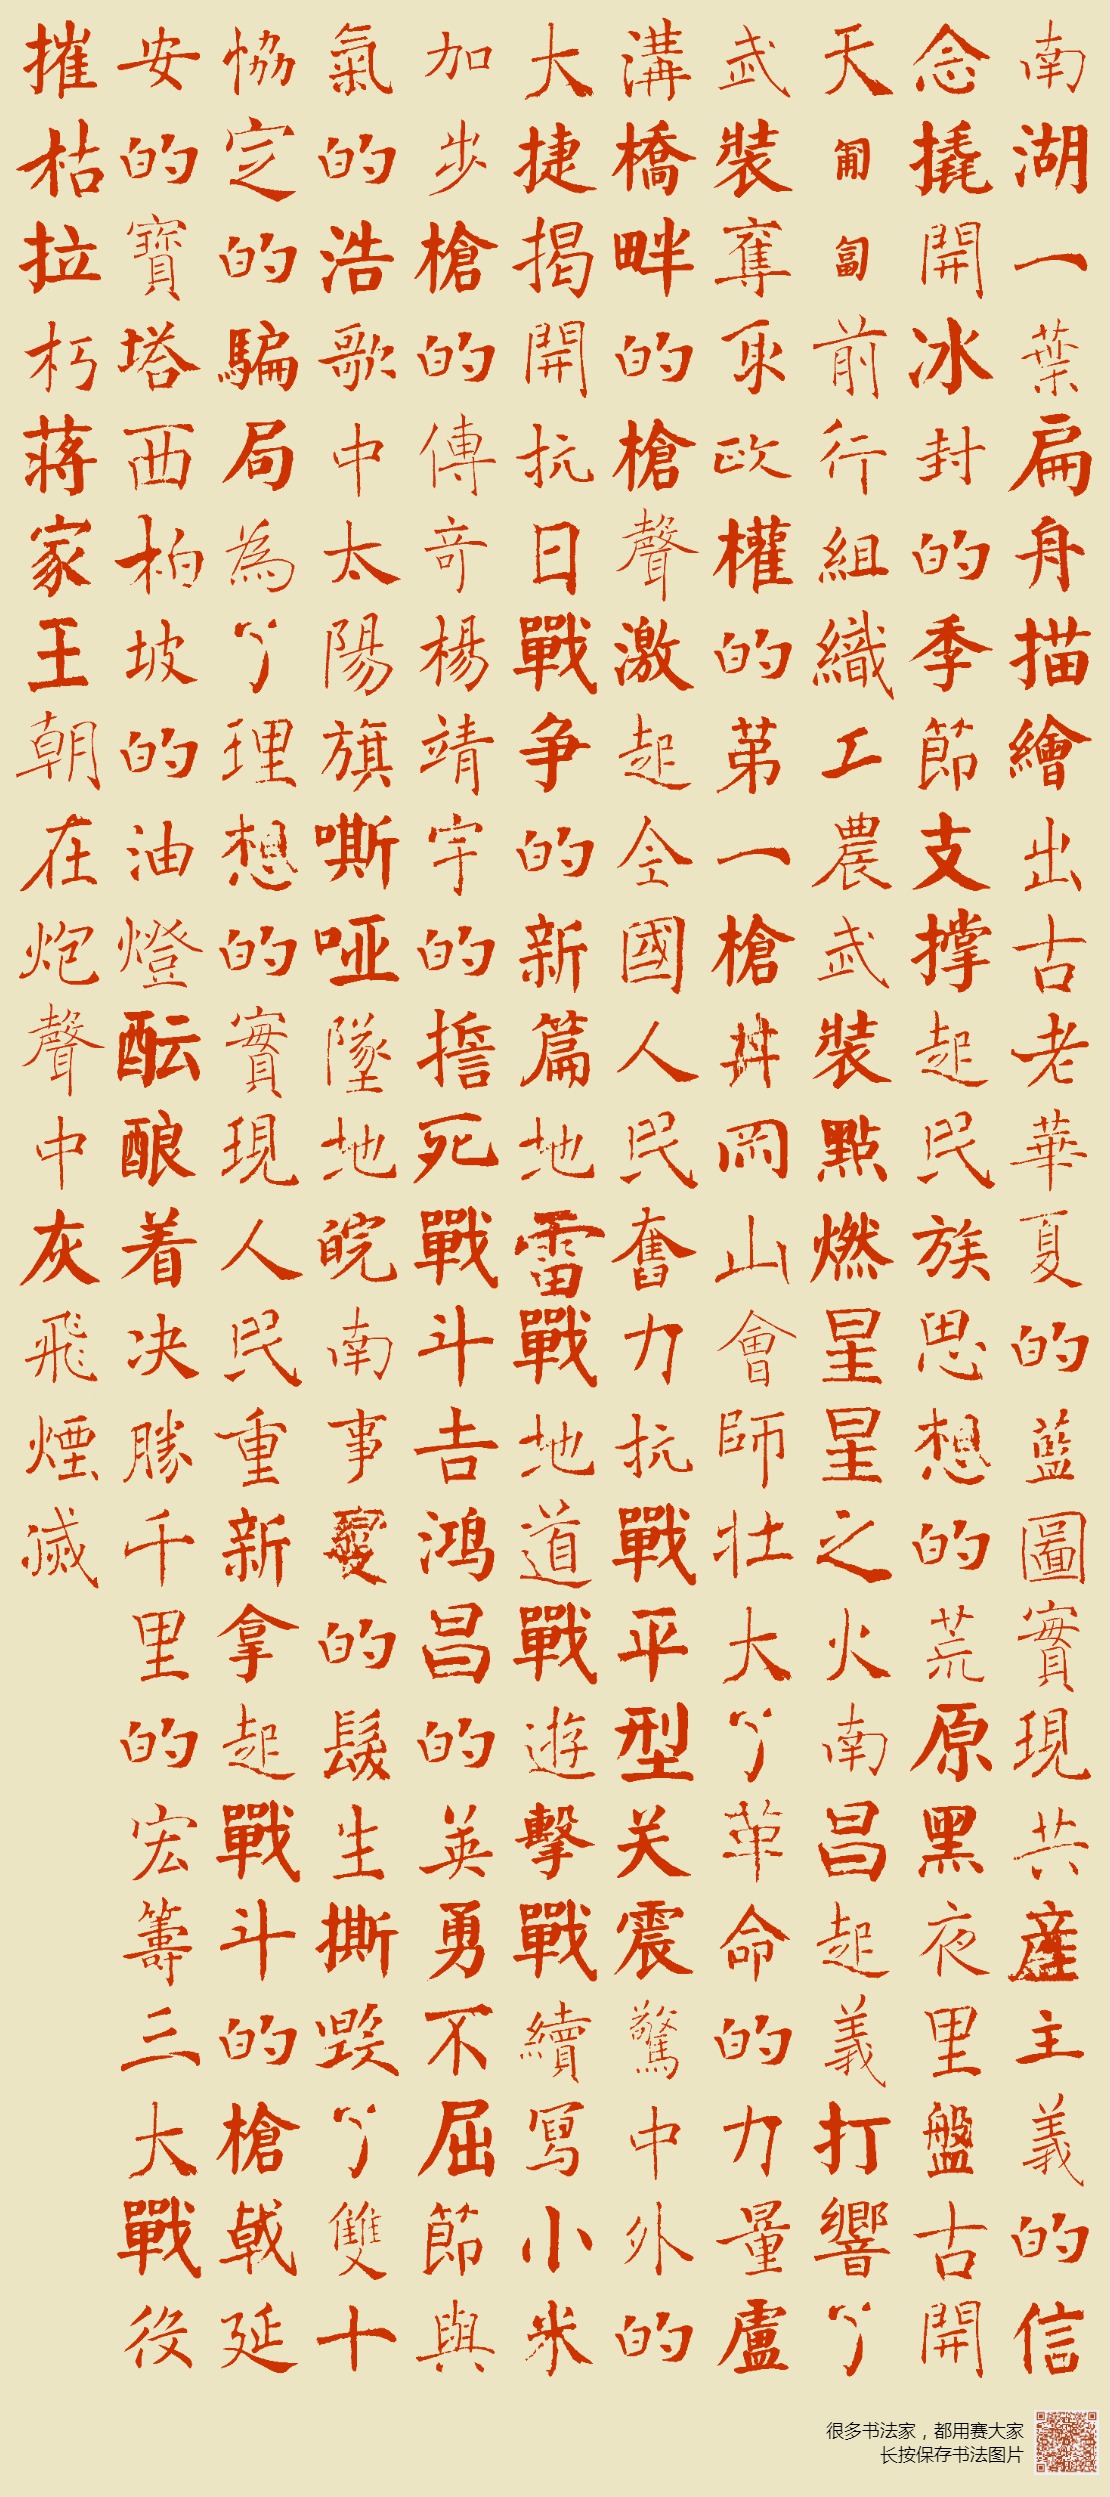 南湖一葉扁舟描繪出古老華夏的藍圖實現共產主義的信
念撬開冰封的季節支撑起民族思想的荒原黑夜里盤古開
天匍匐前行組織工農武裝點燃星星之火南昌起義打響了
武裝奪取政權的第一槍井岡山會師壯大了革命的力量盧
溝橋畔的槍聲激起全國人民奮力抗戰平型关震驚中外的
大捷揭開抗日戰争的新篇地雷戰地道戰遊擊戰續寫小米
加步槍的傳奇楊靖宇的誓死戰斗吉鴻昌的英勇不屈節與
氣的浩歌中太陽旗嘶哑墜地皖南事變的髮生撕毀了雙十
協定的騙局為了理想的實現人民重新拿起戰斗的槍戟延
安的寶塔西柏坡的油燈酝酿着决勝千里的宏籌三大戰役
摧枯拉朽蒋家王朝在炮聲中灰飛煙滅
很多书法家，都用赛大家
长按保存书法图片